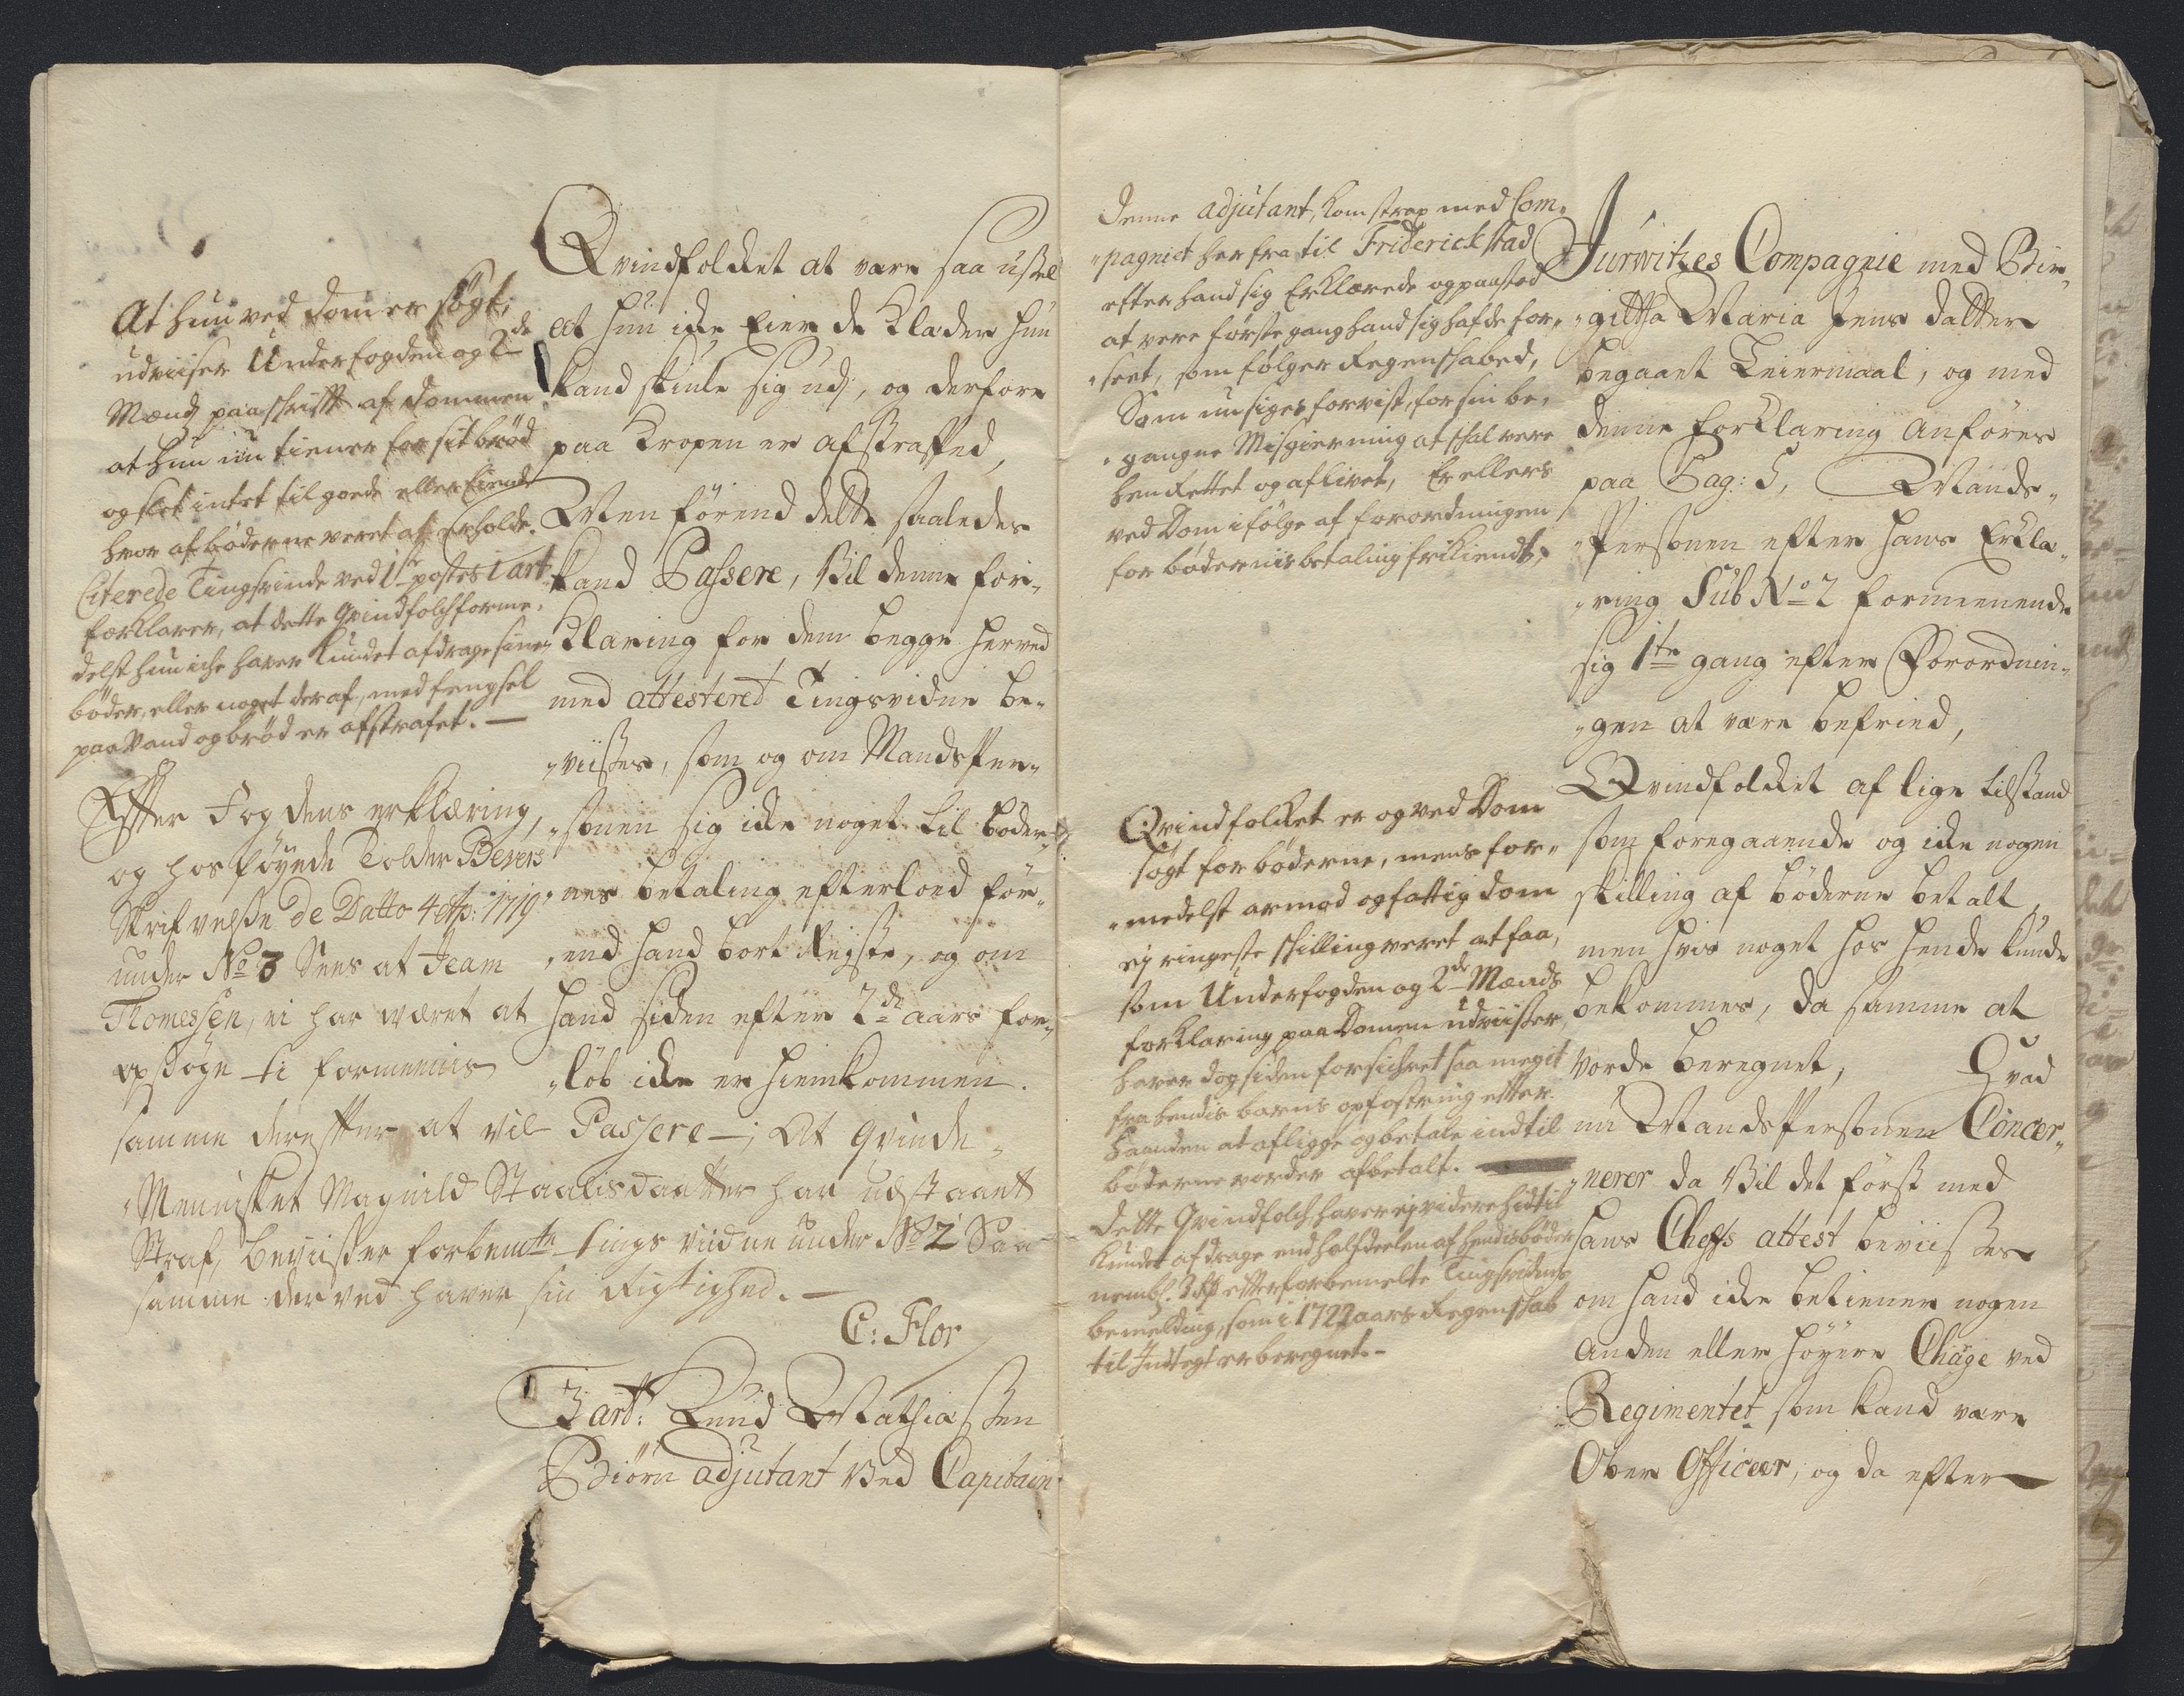 At hun ved dom er søgt,
udviiser Underfogden og 2de
Mænds paaschrifft af dommen
at hun nu tiener for sit brød
og slet intet til goede eller Eiende
hvor af bøderne veret at Erholde.
Citerede Tingsvinde ved 1st postes 1 art:
forklarer, at dette Qvindfolch forme-
delst hun iche haver kundet afdrage sine
bøder, eller noget deraf, med fengsel
paa Vand og brød er afstrafet. —
Effter Fogdens erklæring,
og hosføyede Tolder Beyers
Skrifvelse de Datto 4 Sep: 1719
under No 3 Sees at Jeam
Thomessen, ei har været at
opsøge ti formenes
samme dereffter at vil Passere —; At Qvinde-
Mennisket Magnild Staalisdaatter har udstaaet
Straf, beviiser forbemte tings viidne under No 2 Saa
samme derved haver sin Rigtighed. —
C: Flor
Qvindfolcket at være saa ussel
at hun icke Eier de Klæder hun
kand skiule sig udj, og derfore
paa Kropen er afstraffed,
Men førend dette saaledes
kand Passere, Vil denne for-
klaring for dem begge herved
med attesteret Tingsvidne be-
viises, som og om Mandsper-
sonen sig icke noget til bøder-
nes betaling efterloed før-
end hand bort Reyste, og om
hand siden efter 2de aars for-
løb icke er hiemkommen.
3 art: Knud Mathiassen
Biørn adjutant Ved Capitain
Denne adjutant, kom strax med Com-
pagniet herfra til Friderichstad
efter hand sig Erklærede og paastod
at vere første gang hand sig hafde for-
seet, som følger Regenskabed,
Som nu siges forvist, for sin be-
gangne Misgierning at skal vere
henrettet og aflivet, Er ellers
ved Dom i følge af forordningen
for bødernis betaling frikiendt,
Qvindfolket er og ved Dom
søgt for bøderne, mens for-
medelst armod og fattigdom
ej ringeste skilling veret at faa,
som Underfogden og 2de Mænds
forklaring paa Domen udviiser,
haver dog siden forsichret saa megit
fra hendis barns opfostring etter
haanden at afligge og betale indtil
bøderne vorder afbetalt. —
Dette Qvindfolch haver ej videre hidtil
kundet afdrage end halfdeelen af hendis bøder
nembl. 3 rdr etter forbemelte Tingsvidnes
bemelding, som i 1722 aars Regenskab
til Indtegt er beregnet. -
Jurwitzes Compagnie med Bir-
githa Maria Jens datter
begaaet Leiermaal, og med
denne forklaring anføres
paa Pag: 5, Mands-
Personen efter hans Erklæ-
ring Sub No 2 formeenende
sig 1te gang efter Forordnin-
gen at være befried,
Qvindfolcket af lige tilstand
som foregaaende og icke nogen
skilling af bøderne betalt,
men hvis noget hos hende kunde
bekommes, da samme at
vorde beregnet, Hvad
nu Mandspersonen Concer-
nerer da Vil det først med
hans Chefs attest beviises
om hand icke betiener nogen
anden eller høyere Chage ved
Regimentet som kand være
Over Officeer, og da efter